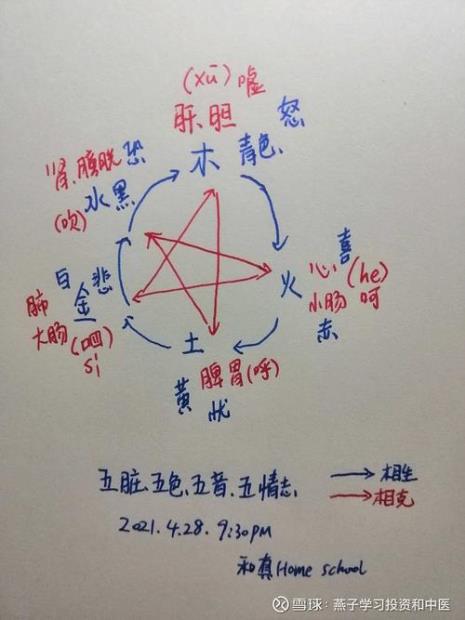 (xū) 嘘
肝胆 怒
木 青色、
肾、膀胱 恐
水 黑
(吹)
喜
心 (he)
火
小肠 呵
赤
白 悲
金
肺
大肠 (呬)
si
土
脾胃(呼)
黄 忧
五脏、五色、五音、五情志、 → 相生
→ 相克
2021.4.28.9:30PM
和真Home school
雪球:燕子学习投资和中医